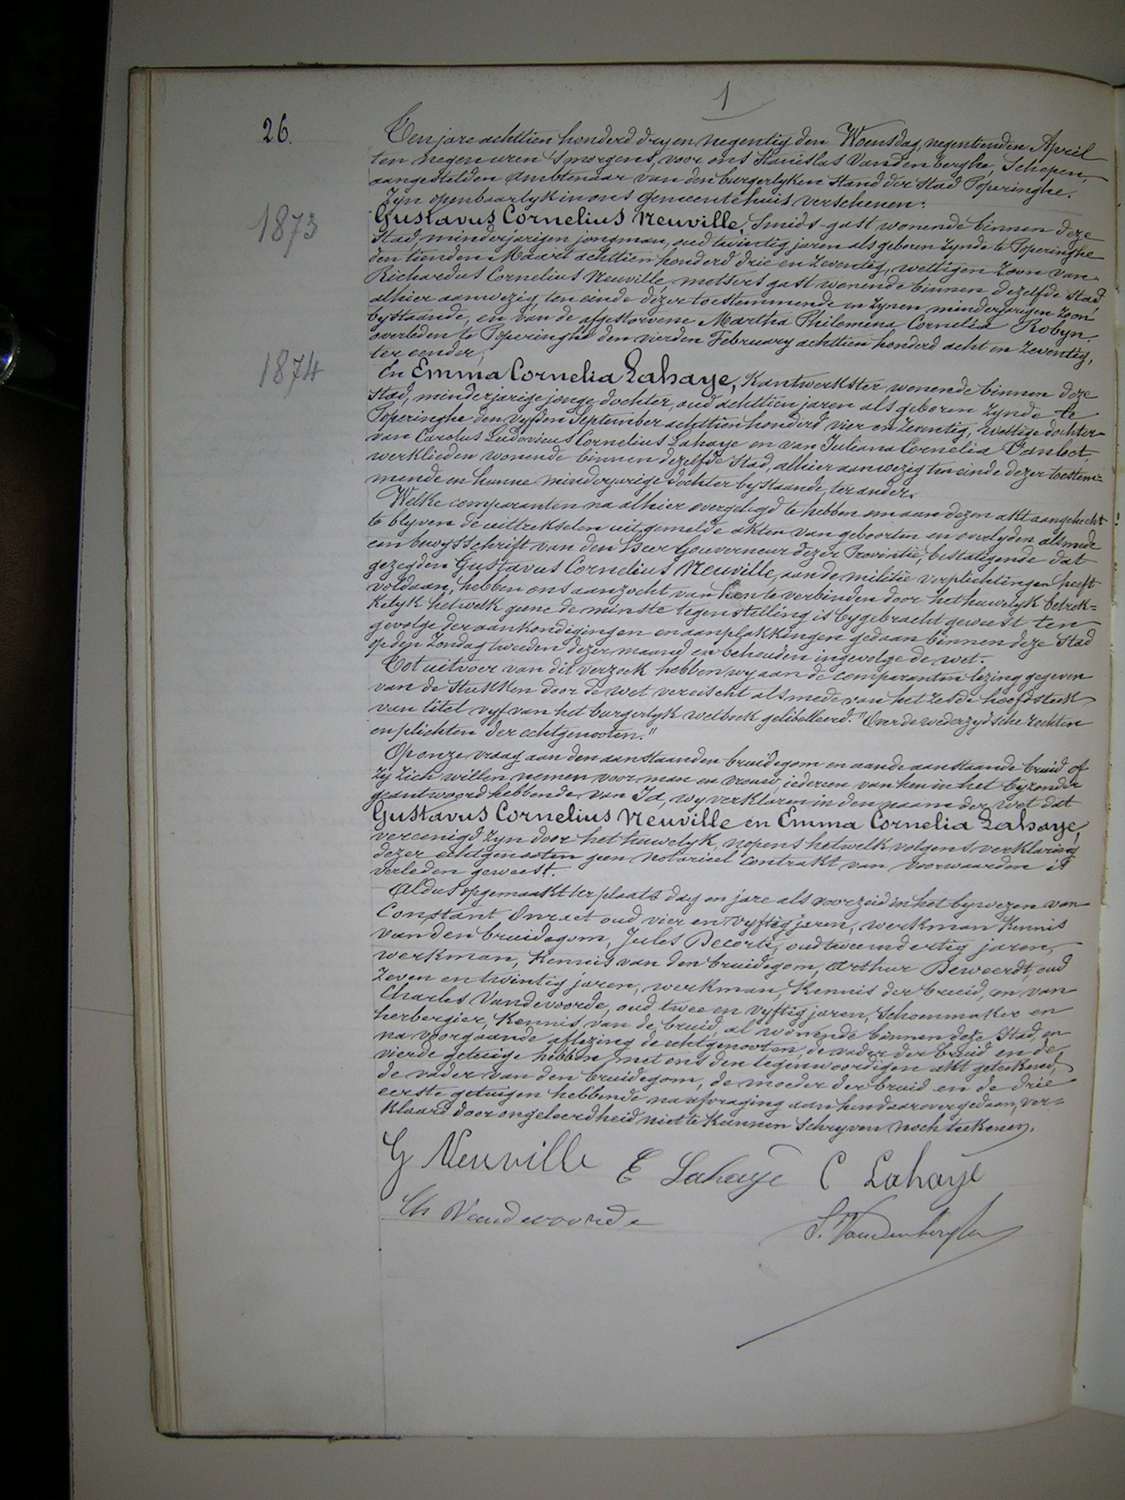 1
26.
Ten jare achttien honderd dry en negentig den Woensdag, negentienden April
ten negen uren 's morgens, voor ons Stanislas Vandenberghe, Schepen,
aangestelden Ambtenaar van den burgerlyken Stand der Stad Poperinghe.
Zyn openbaarlyk in ons gemeentehuis verschenen:
1873
Gustavus Cornelius Neuville, Smids-gast wonende binnen deze
Stad, minderjarigen jongman, oud twintig jaren als geboren zynde te Poperinghe
den tienden Maart achttien honderd drie en zeventig, wettigen zoon van
Richardus Cornelius Neuville, metsers gast wonende binnen dezelfde Stad
alhier aanwezig, ten einde dezer toestemmende en zynen minderjarigen zoon
bystaande, en van de afgestorvene Martha Philomena Cornelia Robyn
overleden te Poperinghe den February achttien honderd acht en zeventig,
ter eender,
1874
En Emma Cornelia Lahaye, Kantwerkster wonende binnen deze
Stad, minderjarige jonge dochter, oud achttien jaren als geboren zynde te
Poperinghe den vyfden September achttien honderd vier en zeventig, wettige dochter
van Carolus Ludovicus Cornelius Lahaye en van Juliana Cornelia
werklieden wonende binnen dezelfde Stad, alhier aanwezig ten einde dezer toestem-
mende en hunne minderjarige dochter bystaande, ter ander.
Welke comparanten na alhier overgelegd te hebben om aan dezen akt aangehecht
te blyven de uittrekselen uit gemelde akten van geboorten en overlyden alsmede
een bewysschrift van den Heer Gouverneur dezer Provintie, bestatigende dat
gezegden Gustavus Cornelius Neuville, aan de militie verplichtingen heeft
voldaan, hebben ons aanzocht van hen te verbinden door het huwelyk betrek-
kelyk hetwelk geene de minste tegenstelling is bygebracht geweest ten
gevolge der aankondigingen en aanplakkingen gedaan binnen deze Stad
op den Zondag tweeden dezer maand en behouden ingevolge de wet.
Tot uitvoer van dit verzoek hebben wy aan de comparanten lezing gegeven
van de stukken door de wet vereischt alsmede van het zesde hoofdstuk
van titel vyf van het burgerlyk wetboek gelibelleerd: "Over de wederzydsche rechten
en plichten der echtgenooten."
Op onze vraag aan den aanstaanden bruidegom en aan de aanstaande bruid of
zy zich willen nemen voor man en vrouw, iedereen van hen in het byzonder
geantwoord hebbende van Ja, wy verklaren in den naam der wet dat
Gustavus Cornelius Neuville en Emma Cornelia Lahaye,
vereenigd zyn door het huwelyk, nopens hetwelk volgens verklaring
dezer echtgenooten geen notarieel contrakt van voorwaarden is
verleden geweest.
Aldus opgemaakt ter plaats dag en jare als voorzeid in het bywezen van
Constant oud vier en vyftig jaren, werkman kennis
van den bruidegom, Jules Decorte, oud twee en dertig jaren,
werkman, kennis van den bruidegom, Arthur Deweerdt, oud
zeven en twintig jaren, werkman, kennis der bruid, en van
Charles Vandevoorde, oud twee en vyftig jaren, Schoenmaker en
herbergier, kennis van de bruid, al wonende binnen deze Stad, en
na voorgaande aflezing de echtgenooten, de vader der bruid en de
vierde getuige hebben met ons den tegenwoordigen akt geteekend,
de vader van den bruidegom, de moeder der bruid en de drie
eerste getuigen hebbende na afvraging aan hen daarover gedaan, ver-
klaard door ongeleerdheid niet te kunnen schryven noch teekenen.
G Neuville E Lahaye C Lahaye
Ch Vandevoorde S. Vandenberghe